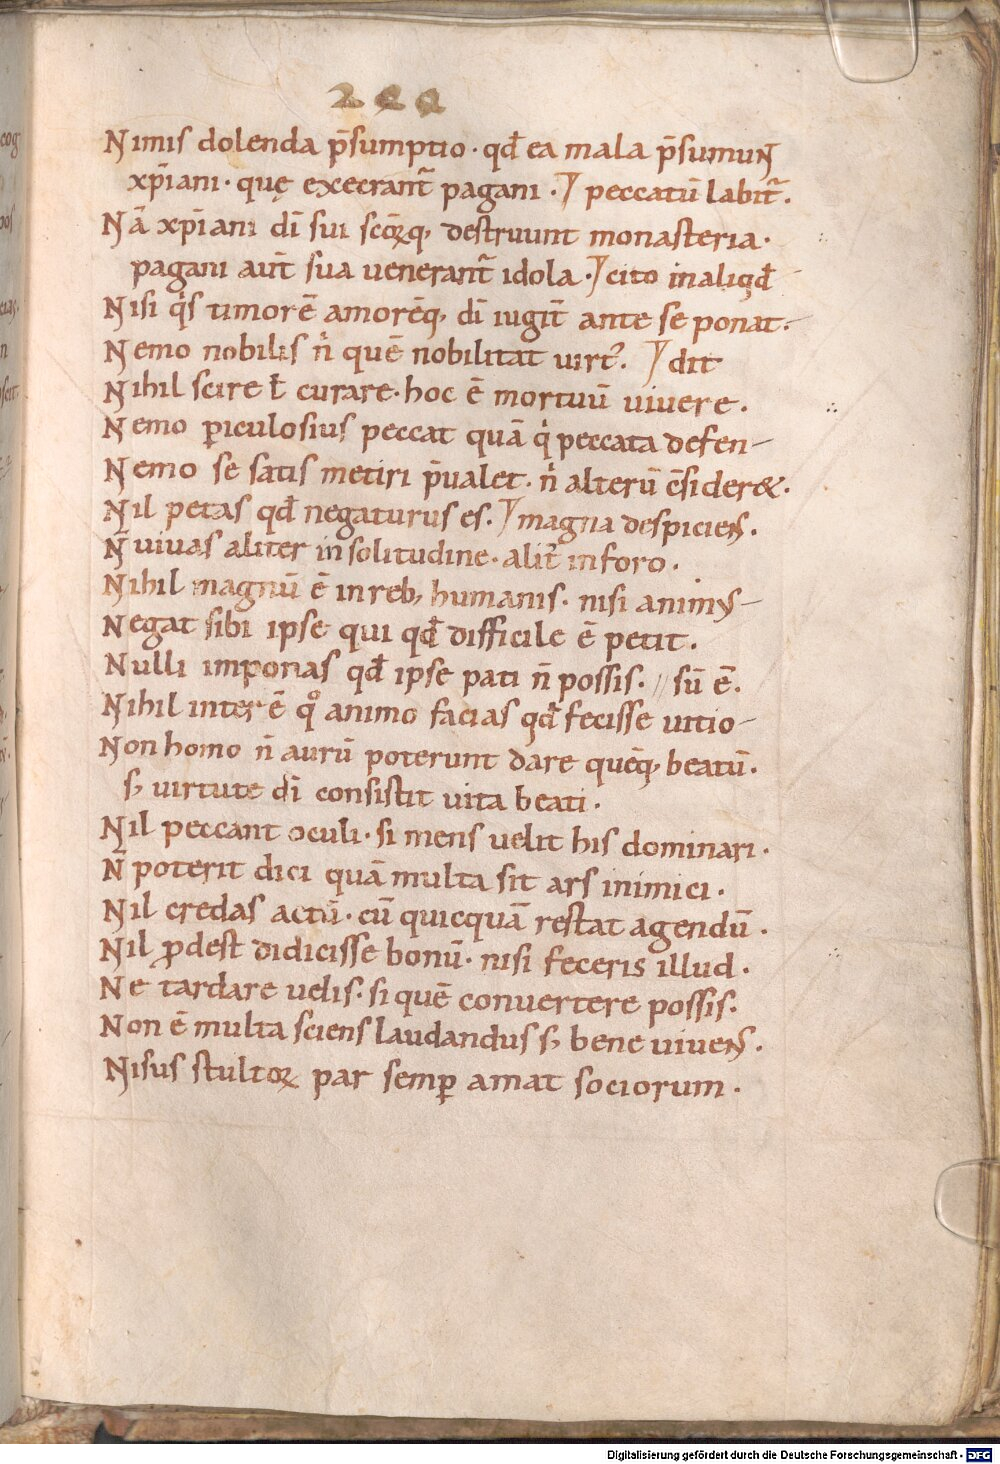 244
Nimis dolenda p̄sumptio · qđ ea mala p̄sumunt
xp̄iani · quę execrant᷑ pagani · peccatū labit᷑.
Nā xp̄iani dī sui scōꝝq; destruunt monasteria ·
pagani aut̄ sua uenerant᷑ idola · cito in aliqđ
Nisi q̇s timorē amorēq; dī iugit̄ ante se ponat.
Nemo nobilis n̊ quē nobilitat uirt᷒. dit
Nihil scire ł curare · hoc ē mortuū uiuere .
Nemo ꝑiculosius peccat quā q̇ peccata defen-
Nemo se satis metiri p̄ualet · n̊ alterū c̄sider& .
Nil petas qđ negaturus es. magna despiciens .
N̄ uiuas aliter in solitudine · alit̄ in foro .
Nihil magnū ē in reb; humanis · nisi animus
Negat sibi ipse qui qđ difficile ē petit .
Nulli imponas qđ ipse pati n̄ possis . // sū ē .
Nihil inter ē q̊ animo facias qđ fecisse uitio-
Non homo n̄ aurū poterunt dare quēq; beatū .
s; uirtute dī consistit uita beati .
Nil peccant oculi · si mens uelit his dominari .
N̄ poterit dici quā multa sit ars inimici .
Nil credas actū · cū quicquā restat agendū .
Nil ꝓdest didicisse bonū · nisi feceris illud .
Ne tardare uelis · si quē conuertere possis .
Non ē multa sciens laudandus s; bene uiuens .
Nisus stultoꝝ par semꝑ amat sociorum .
Digitalisierung gefördert durch die Deutsche Forschungsgemeinschaft - DFG